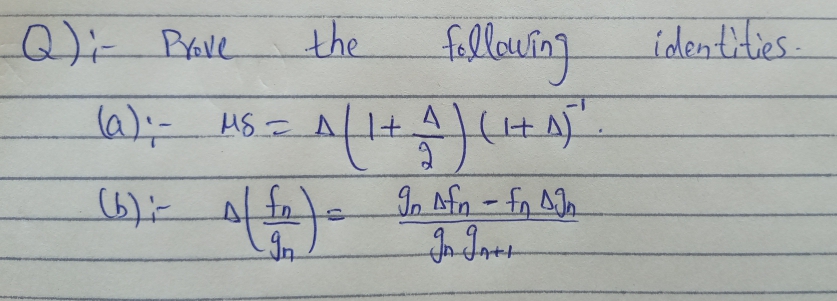 Q):- Prove the following identities.
(a):- μδ = Δ(1 + Δ/2)(1 + Δ)⁻¹.
(b):- Δ(fn/gn) = (gn Δfn - fn Δgn)/(gn gn+1)